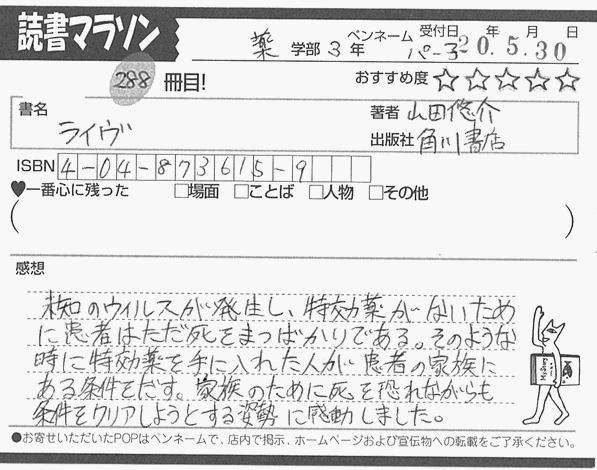 読書マラソン
薬 学部 3 年 ペンネーム パー子 受付日 20 年 5 月 30 日
288 冊目! おすすめ度 ☆☆☆☆☆
書名 ライヴ
著者 山田悠介
出版社 角川書店
ISBN 4-04-873615-9
♥一番心に残った □場面 □ことば □人物 □その他
( )
感想
未知のウィルスが発生し、特効薬がないため
に患者はただ死をまつばかりである。そのような
時に特効薬を手に入れた人が患者の家族に
ある条件をだす。家族のために死を恐れながらも
条件をクリアしようとする姿勢に感動しました。
●お寄せいただいたPOPはペンネームで、店内で掲示、ホームページおよび宣伝物への転載をご了承ください。